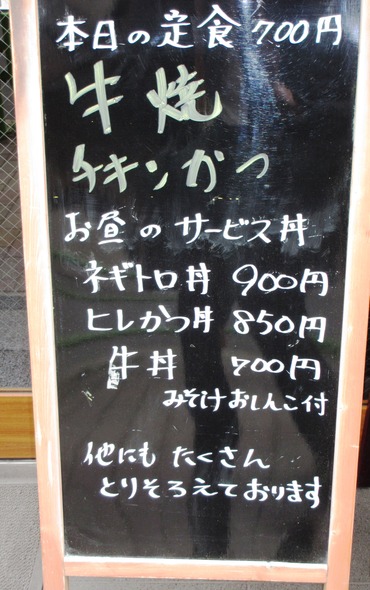 本日の定食 700円
牛焼
チキンかつ
お昼のサービス丼
ネギトロ丼 900円
ヒレかつ丼 850円
牛丼 700円
みそ汁おしんこ付
他にも たくさん
とりそろえております